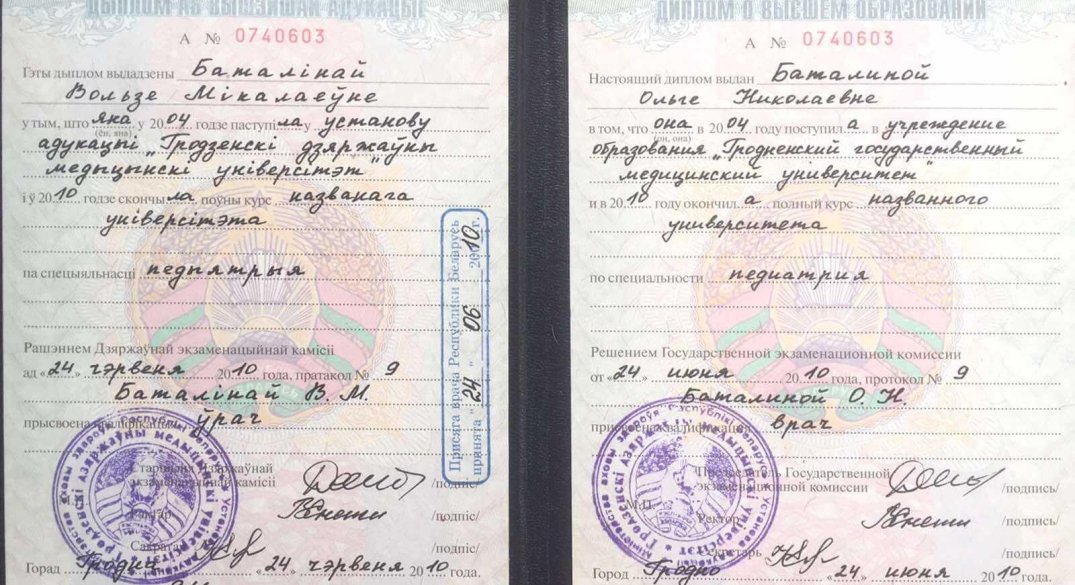 ДЫПЛОМ АБ ВЫШЭЙШАЙ АДУКАЦЫІ
А № 0740603
Гэты дыплом выдадзены Баталінай
Вользе Мікалаеўне
у тым, што яна у 2004 годзе паступіла у установу
(ён, яна)
адукацыі „Гродзенскі дзяржаўны
медыцынскі універсітэт"
і ў 2010 годзе скончыла поўны курс названага
універсітэта
па спецыяльнасці педыятрыя
Рашэннем Дзяржаўнай экзаменацыйнай камісіі
ад «24» чэрвеня 2010 года, пратакол № 9
Баталінай В. М.
прысвоена кваліфікацыя ўрач
Старшыня Дзяржаўнай
экзаменацыйнай камісіі /подпіс/
Рэктар /подпіс/
Сакратар /подпіс/
Горад Гродна «24 чэрвеня 2010 года.
Присяга врача Республики Беларусь
принята "24" 06 2010 г.
ДИПЛОМ О ВЫСШЕМ ОБРАЗОВАНИИ
А № 0740603
Настоящий диплом выдан Баталиной
Ольге Николаевне
в том, что она в 2004 году поступила в учреждение
(он, она)
образования „Гродненский государственный
медицинский университет"
и в 2010 году окончила полный курс названного
университета
по специальности педиатрия
Решением Государственной экзаменационной комиссии
от «24» июня 2010 года, протокол № 9
Баталиной О. Н.
присвоена квалификация врач
Председатель Государственной
экзаменационной комиссии /подпись/
М.П.
Ректор /подпись/
Секретарь /подпись/
Город Гродно «24 июня 2010 года.